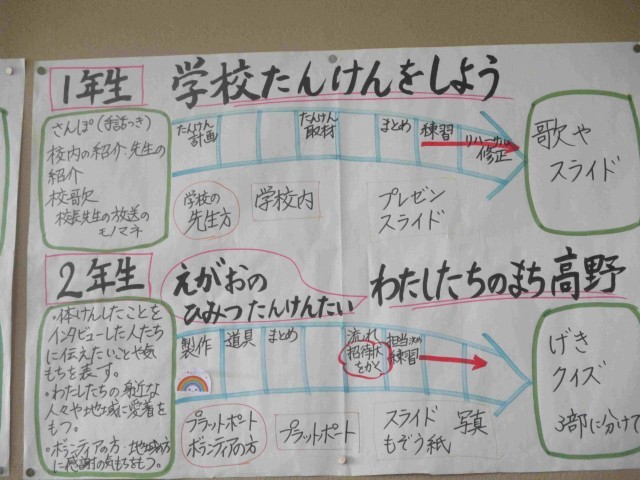 1年生
学校たんけんをしよう
さんぽ(手話つき)
校内の紹介・先生の
紹介
校歌
校長先生の放送の
モノマネ
たんけん
計画
たんけん
取材
まとめ
練習
リハーサル
修正
学校の
先生方
学校内
プレゼン
スライド
歌や
スライド
2年生
えがおの
ひみつたんけんたい
わたしたちのまち高野
・体けんしたことを
インタビューした人たち
に伝えたいことや気
もちを表す。
・わたしたちの身近な
人々や地域に愛着を
もつ。
・ボランティアの方・地域の方
に感謝の気もちをもつ。
製作
道具
まとめ
流れ
招待状
をかく
担当決め
練習
プラットポート
ボランティアの方
プラットポート
スライド
もぞう紙
写真
げき
クイズ
3部に分けて